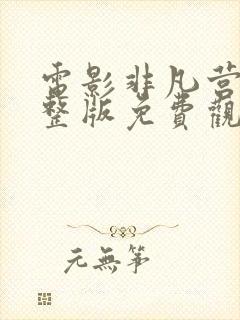 電影非凡营
整版免費觀
元無筝